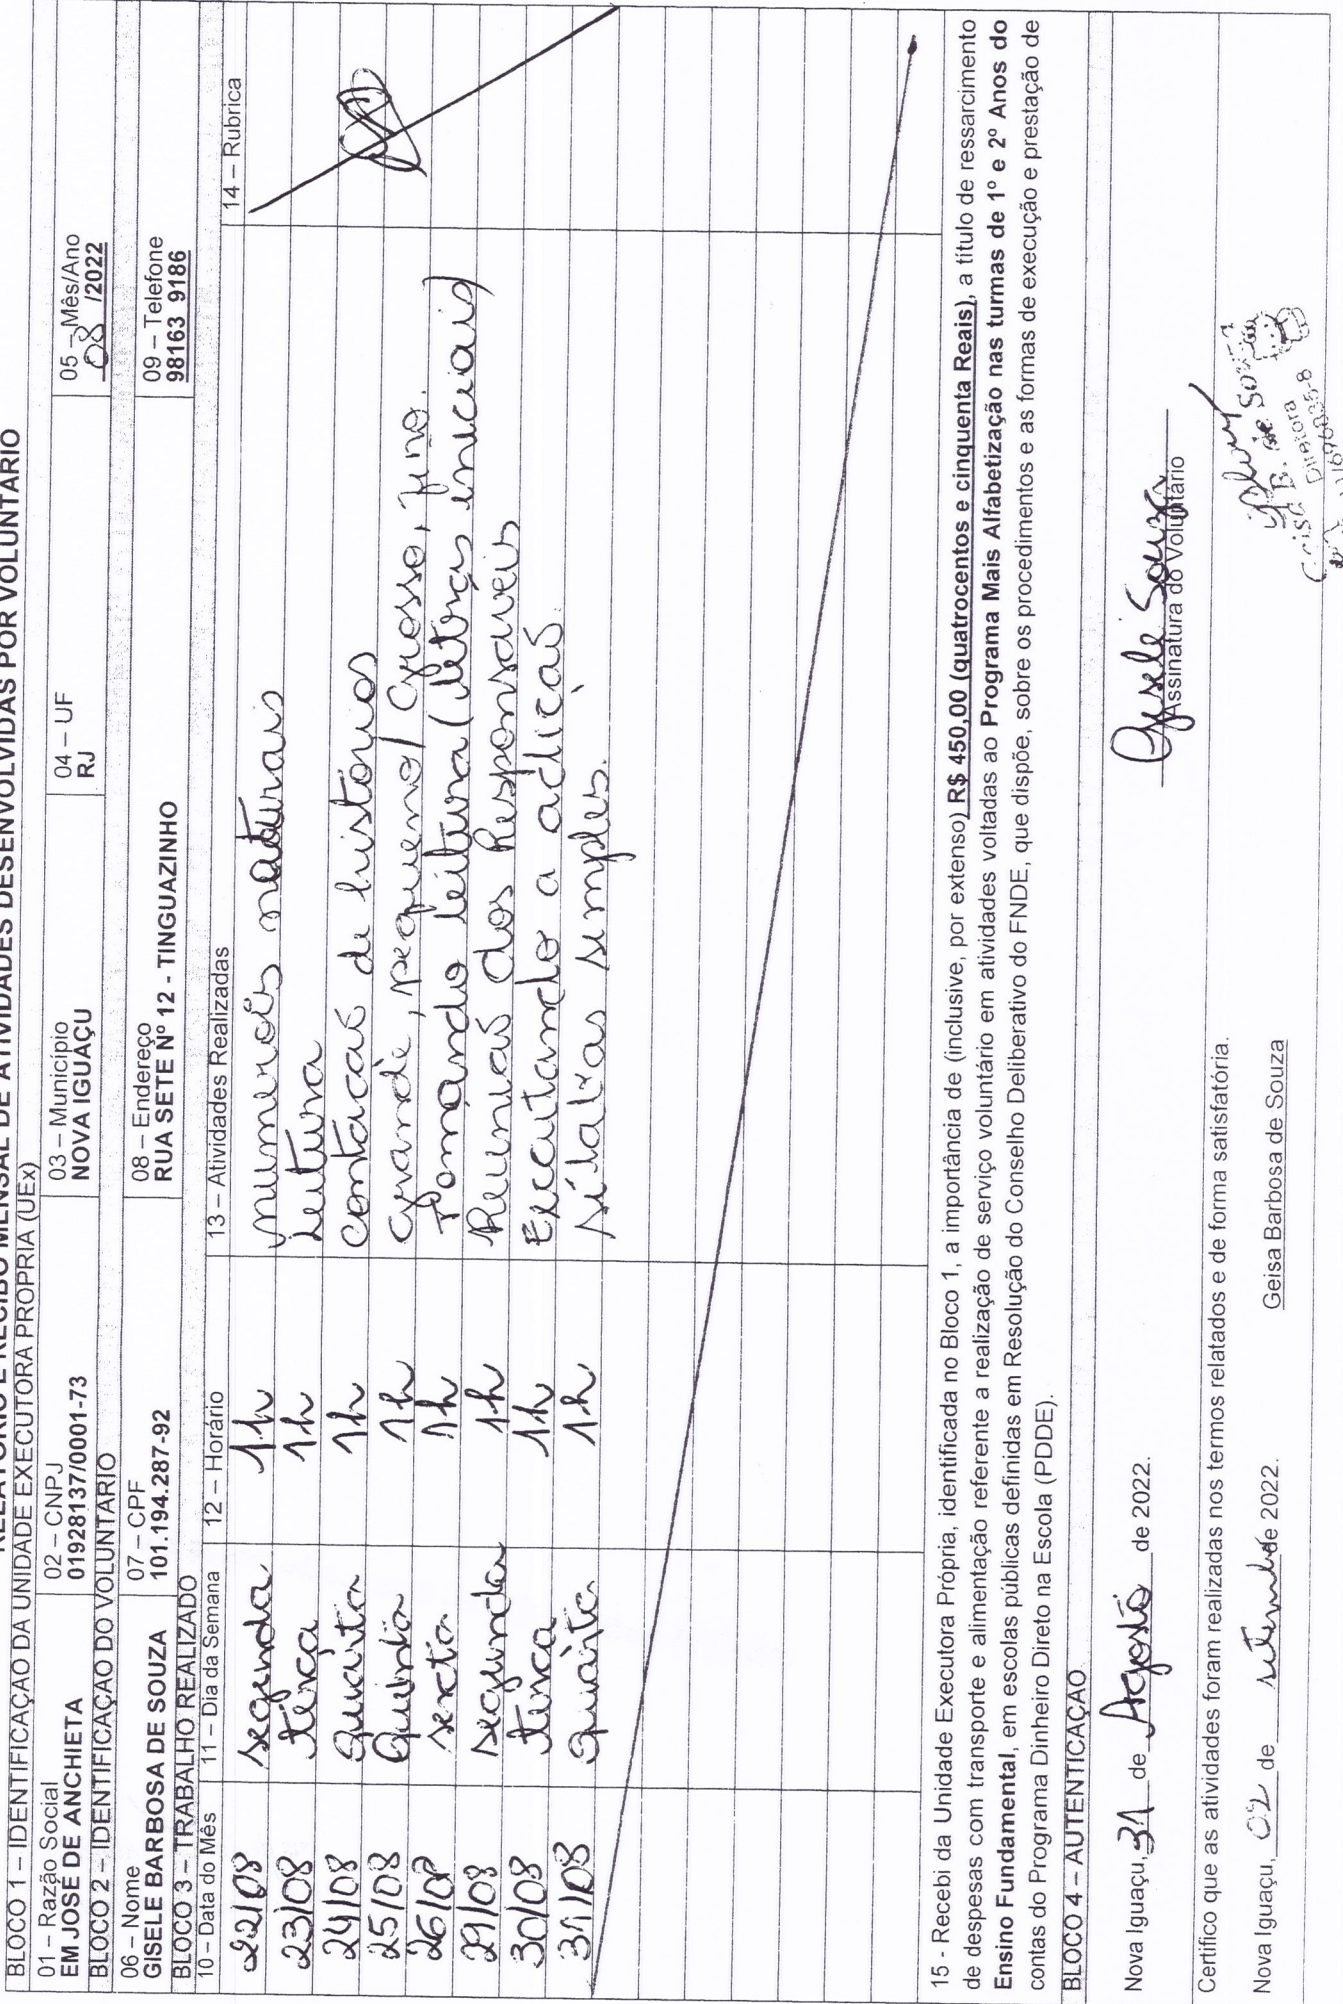 RELATÓRIO E RECIBO MENSAL DE ATIVIDADES DESENVOLVIDAS POR VOLUNTÁRIO
BLOCO 1 – IDENTIFICAÇÃO DA UNIDADE EXECUTORA PRÓPRIA (UEx)
01 – Razão Social
EM JOSÉ DE ANCHIETA
02 – CNPJ
01928137/0001-73
03 – Município
NOVA IGUAÇU
04 – UF
RJ
05 – Mês/Ano
08 /2022
BLOCO 2 – IDENTIFICAÇÃO DO VOLUNTÁRIO
06 – Nome
GISELE BARBOSA DE SOUZA
07 – CPF
101.194.287-92
08 – Endereço
RUA SETE Nº 12 - TINGUAZINHO
09 – Telefone
98163 9186
BLOCO 3 – TRABALHO REALIZADO
10 – Data do Mês 11 – Dia da Semana 12 – Horário 13 – Atividades Realizadas 14 – Rubrica
22/08 segunda 1h numerois naturais
23/08 terça 1h Leitura
24/08 Quarta 1h contacão de histórias
25/08 Quinta 1h grande, pequeno/ Grosso, fino.
26/08 sexta 1h Tomando leitura (letras iniciais)
29/08 segunda 1h Reunião dos Responsaveis
30/08 terça 1h Executando a adicão.
31/08 quarta 1h sílabas simples.
15 - Recebi da Unidade Executora Própria, identificada no Bloco 1, a importância de (inclusive, por extenso) R$ 450,00 (quatrocentos e cinquenta Reais), a título de ressarcimento
de despesas com transporte e alimentação referente a realização de serviço voluntário em atividades voltadas ao Programa Mais Alfabetização nas turmas de 1º e 2º Anos do
Ensino Fundamental, em escolas públicas definidas em Resolução do Conselho Deliberativo do FNDE, que dispõe, sobre os procedimentos e as formas de execução e prestação de
contas do Programa Dinheiro Direto na Escola (PDDE).
BLOCO 4 – AUTENTICAÇÃO
Nova Iguaçu, 31 de Agosto de 2022.
Gisele Souza
Assinatura do Voluntário
Certifico que as atividades foram realizadas nos termos relatados e de forma satisfatória.
Nova Iguaçu, 02 de setembro de 2022.
Geisa Barbosa de Souza
B. de Souza
Diretora